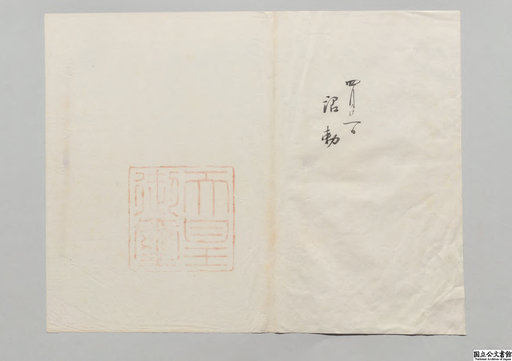 詔勅
天皇
御璽
国立公文書館
National Archives of Japan